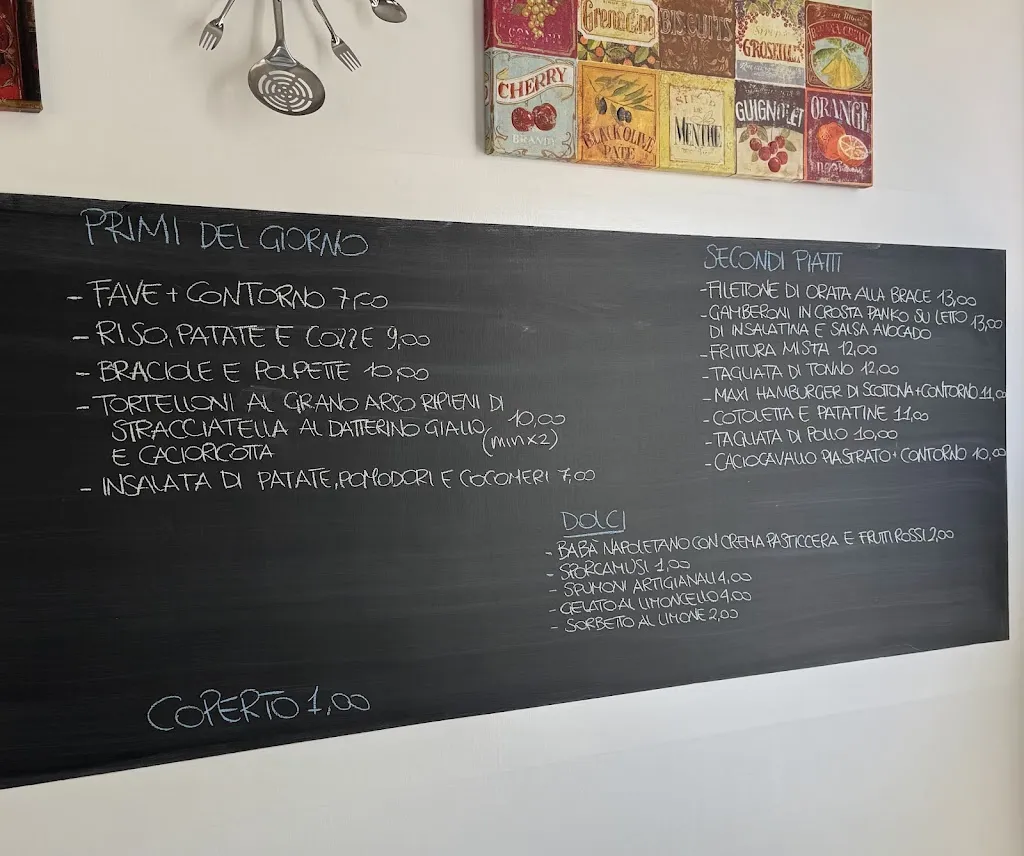 Grenadine
BISCUITS
GROSEILLE
CHERRY
BRANDY
BLACK OLIVE
PATÉ
MENTHE
GUIGNOLET
ORANGE
PRIMI DEL GIORNO
- FAVE + CONTORNO 7,00
- RISO, PATATE E COZZE 9,00
- BRACIOLE E POLPETTE 10,00
- TORTELLONI AL GRANO ARSO RIPIENI DI
STRACCIATELLA AL DATTERINO GIALLO 10,00
E CACIORICOTTA (min x 2)
- INSALATA DI PATATE, POMODORI E COCOMERI 7,00
SECONDI PIATTI
- FILETTONE DI ORATA ALLA BRACE 13,00
- GAMBERONI IN CROSTA PANKO SU LETTO 13,00
DI INSALATINA E SALSA AVOCADO
- FRITTURA MISTA 12,00
- TAGLIATA DI TONNO 12,00
- MAXI HAMBURGER DI SCOTTONA + CONTORNO 11,00
- COTOLETTA E PATATINE 11,00
- TAGLIATA DI POLLO 10,00
- CACIOCAVALLO PIASTRATO + CONTORNO 10,00
DOLCI
- BABÀ NAPOLETANO CON CREMA PASTICCERA E FRUTTI ROSSI 2,00
- SPORCAMUSI 1,00
- SPUMONI ARTIGIANALI 4,00
- GELATO AL LIMONCELLO 4,00
- SORBETTO AL LIMONE 2,00
COPERTO 1,00